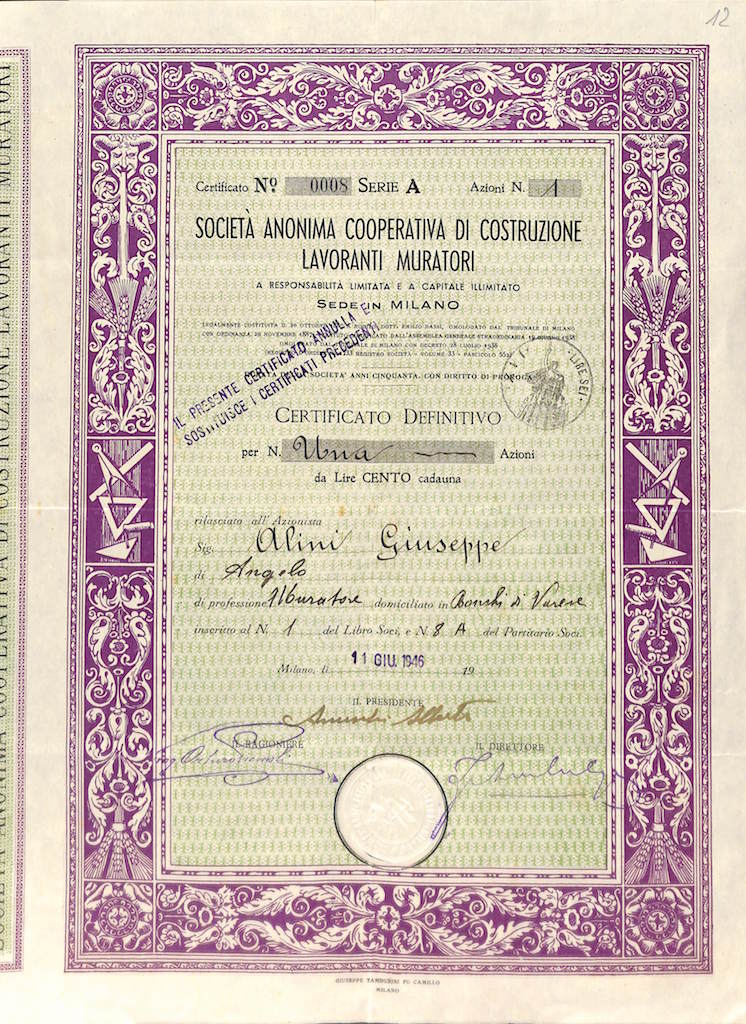 12
Certificato Nº 0008 SERIE A Azioni N. 1
SOCIETÀ ANONIMA COOPERATIVA DI COSTRUZIONE
LAVORANTI MURATORI
A RESPONSABILITÀ LIMITATA E A CAPITALE ILLIMITATO
SEDE IN MILANO
LEGALMENTE COSTITUITA IL 26 OTTOBRE DOTT. EMILIO BASSI, OMOLOGATO DAL TRIBUNALE DI MILANO
CON ORDINANZA 26 NOVEMBRE DALL'ASSEMBLEA GENERALE STRAORDINARIA 12 GIUGNO 1938
DI MILANO CON DECRETO 28 LUGLIO 1938
REGISTRO SOCIETÀ - VOLUME 33 - FASCICOLO
SOCIETA' ANNI CINQUANTA, CON DIRITTO DI PROROGA
IL PRESENTE CERTIFICATO ANNULLA E
SOSTITUISCE I CERTIFICATI PRECEDENTI
LIRE SEI
CERTIFICATO DEFINITIVO
per N. Una Azioni
da Lire CENTO cadauna
rilasciato all'Azionista
Sig. Alini Giuseppe
di Angelo
di professione Muratore domiciliato in di Varese
inscritto al N. 1 del Libro Soci, e N. 8 A del Partitario Soci.
Milano, lì 11 GIU. 1946 19
IL PRESIDENTE
IL RAGIONIERE IL DIRETTORE
GIUSEPPE TAMBURINI FU CAMILLO
MILANO